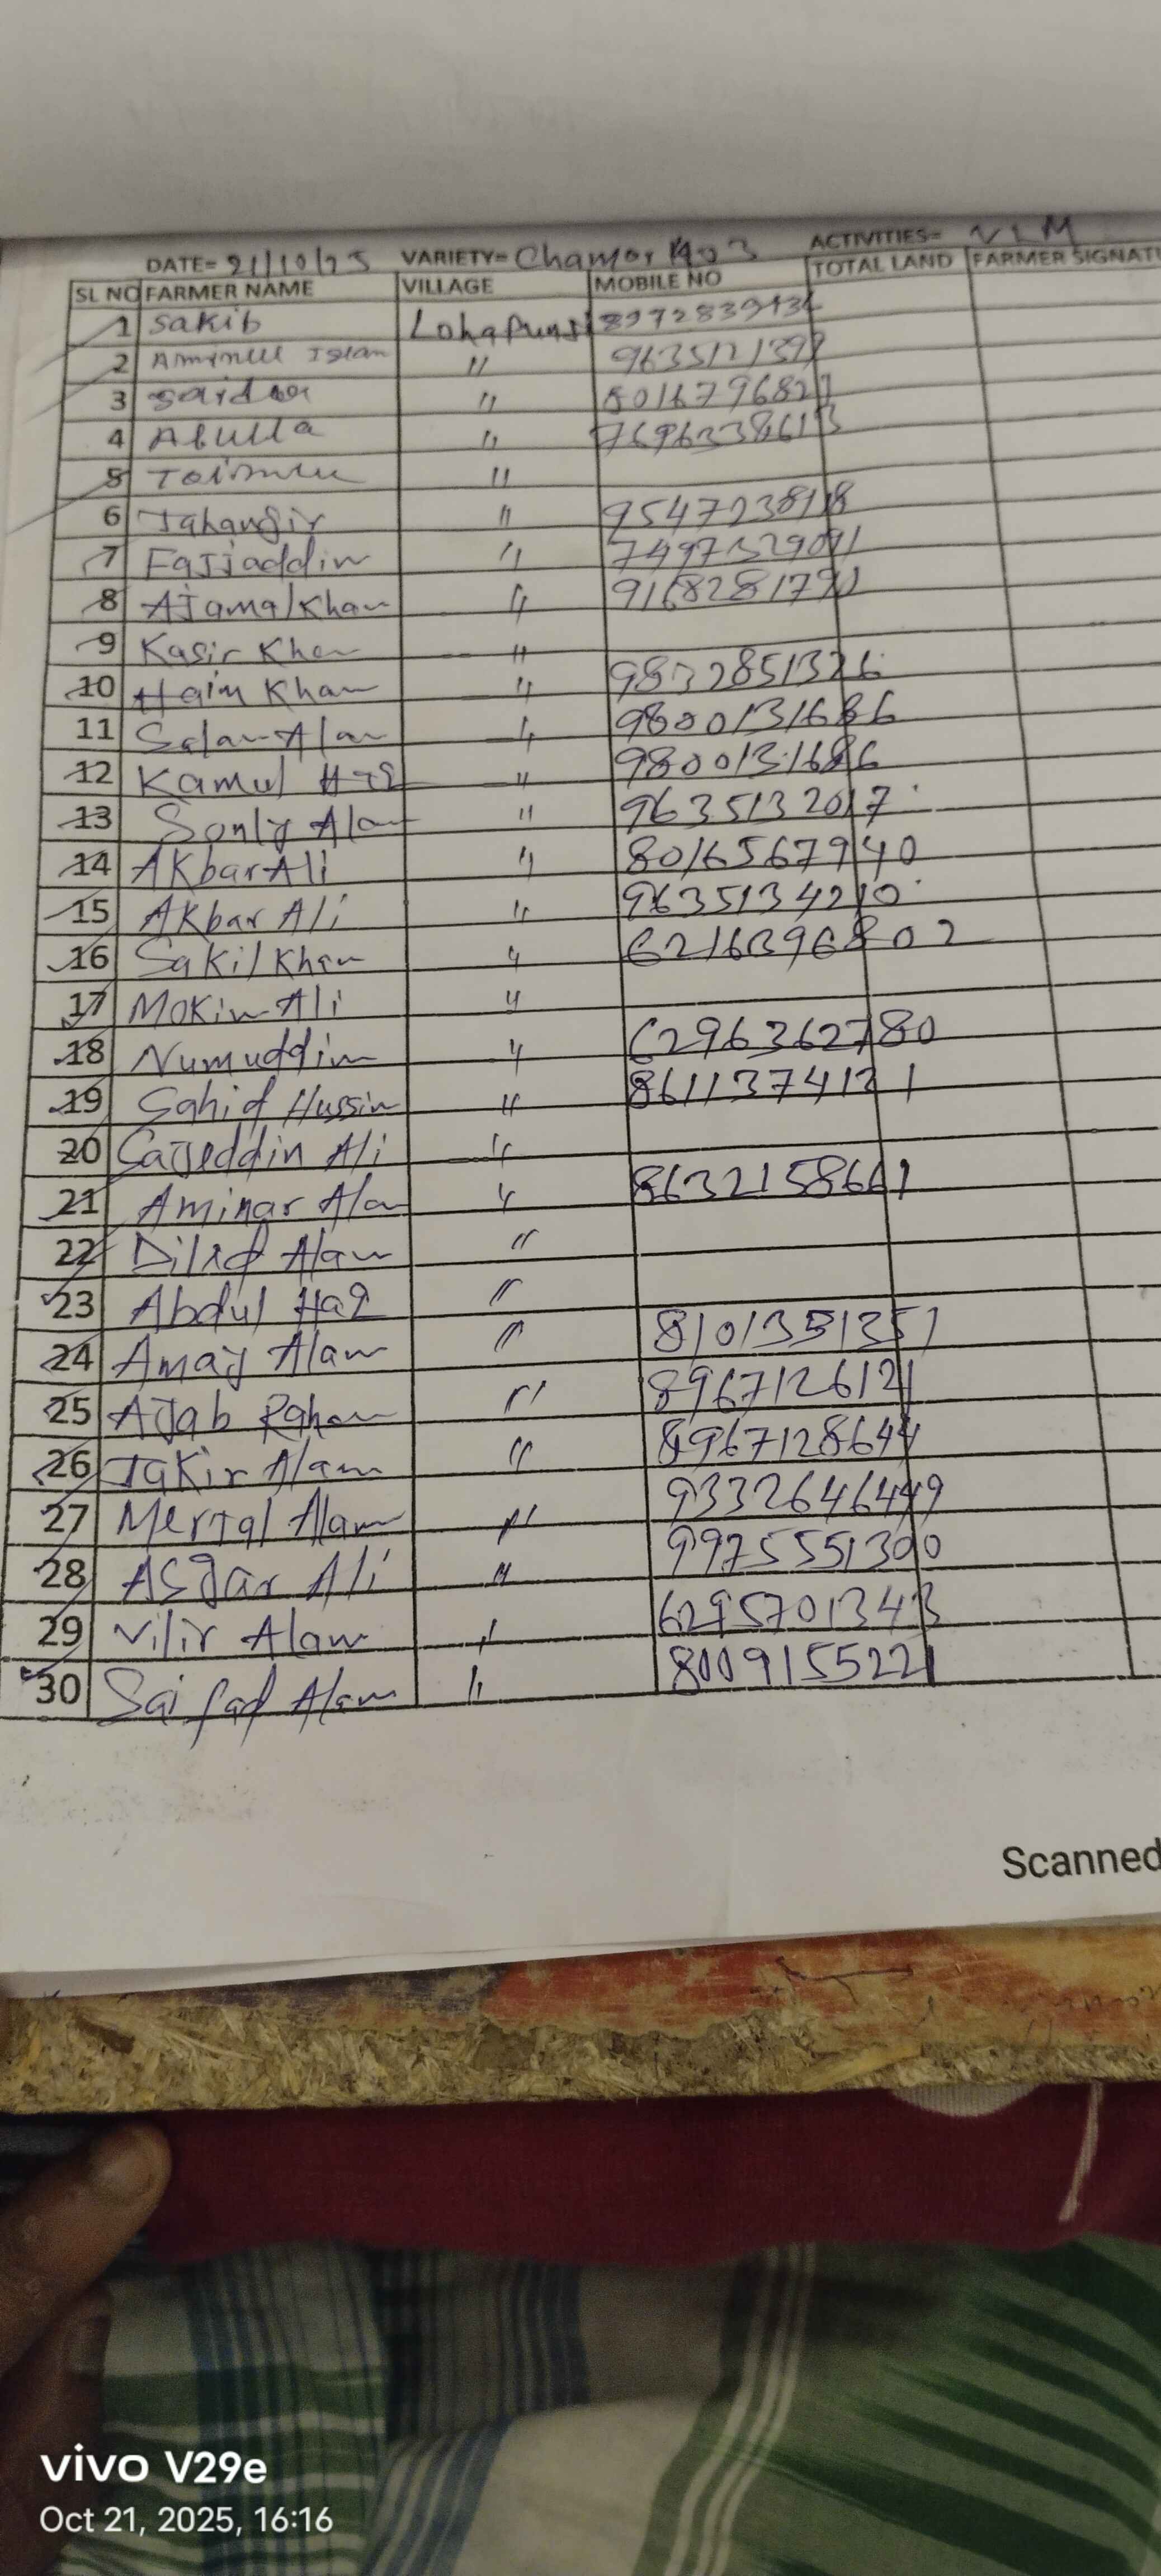 DATE= 21/10/25 VARIETY= Chamor 1403 ACTIVITIES= VLM
SL NO FARMER NAME VILLAGE MOBILE NO TOTAL LAND FARMER SIGNAT
1 Sakib Lohapunji
2 Aminul Islam " 963512139
3 "
4 Abulla "
5 "
6 Jahangir " 9547238118
7 Fajjaddin " 7497329091
8 Ajamal Khan " 9168281790
9 Kasir Khan "
10 Haim Khan " 9832851326
11 Salam Alam " 9800131686
12 Kamul Haq " 9800131686
13 " 9635132017
14 Akbar Ali " 8016567940
15 Akbar Ali " 9635134210
16 Sakil Khan "
17 Mokim Ali "
18 Numuddin " 6296362780
19 Sahid Hussin " 8611374121
20 Sajeddin Ali "
21 Aminar Alam " 8632158661
22 Alam "
23 Abdul Haq "
24 Alam " 8101351351
25 Ajab Raham " 8967126121
26 Jakir Alam " 8967128644
27 Mertal Alam " 9332646449
28 Asgar Ali " 9975551300
29 Vilir Alam " 6295701343
30 Alam " 8009155221
Scanned
vivo V29e
Oct 21, 2025, 16:16